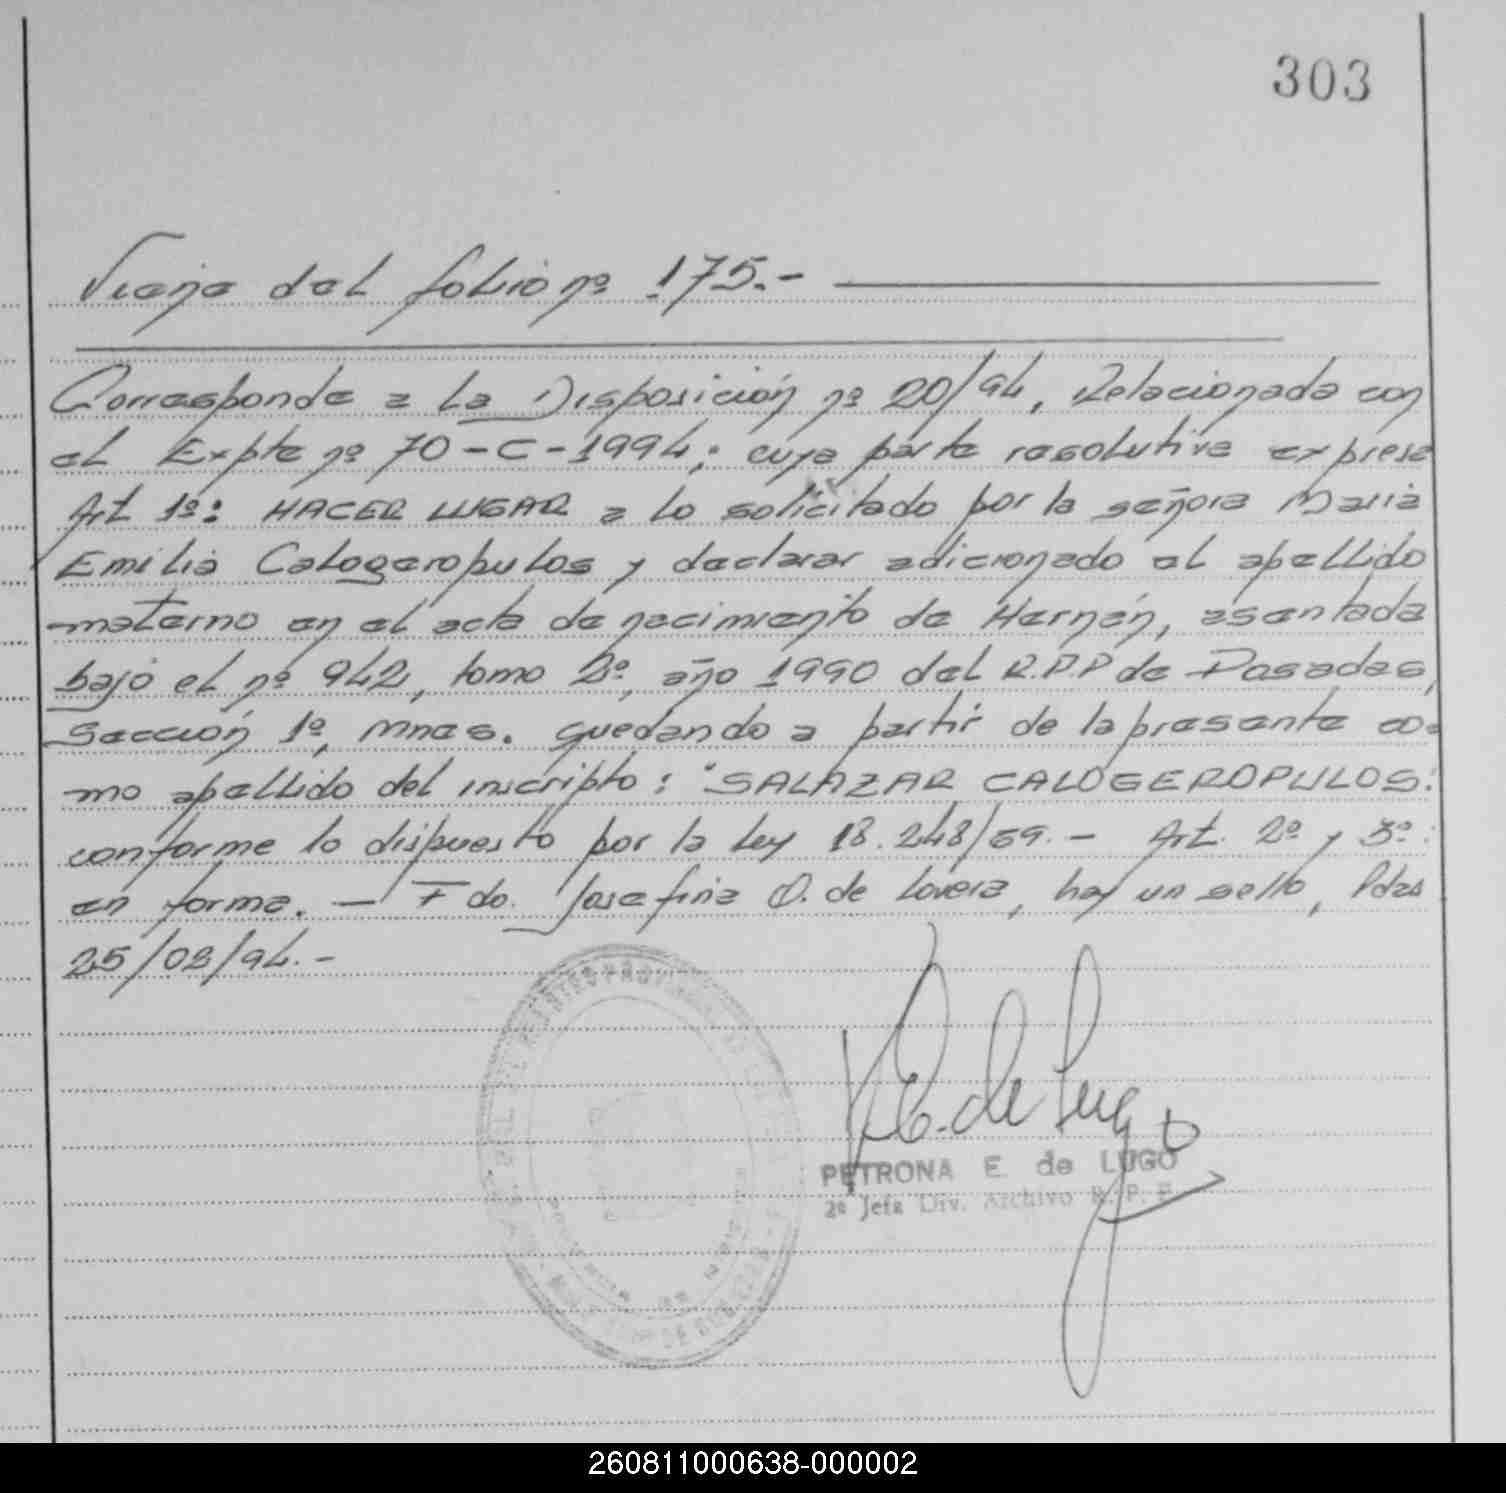 303
Viene del folio nº 175.-
Corresponde a la Disposición nº 20/94, Relacionada con
el Expte nº 70-C-1994; cuya parte resolutiva expresa
Art 1º: HACER LUGAR a lo solicitado por la señora Maria
Emilia Calogeropulos y declarar adicionado el apellido
materno en el acta de nacimiento de Hernán, asentada
bajo el nº 942, tomo 2º, año 1990 del R.P.P de Posadas,
Sección 1º, Mnes. quedando a partir de la presente co-
mo apellido del inscripto: "SALAZAR CALOGEROPULOS".
conforme lo dispuesto por la Ley 18.248/69.- Art. 2º y 3º:
en forma. — Fdo. Josefina O. de Lovera, hay un sello, Pdas
25/02/94.-
P.E. de Lugo
PETRONA E de LUGO
2º Jefa Div. Archivo R. P. P
260811000638-000002